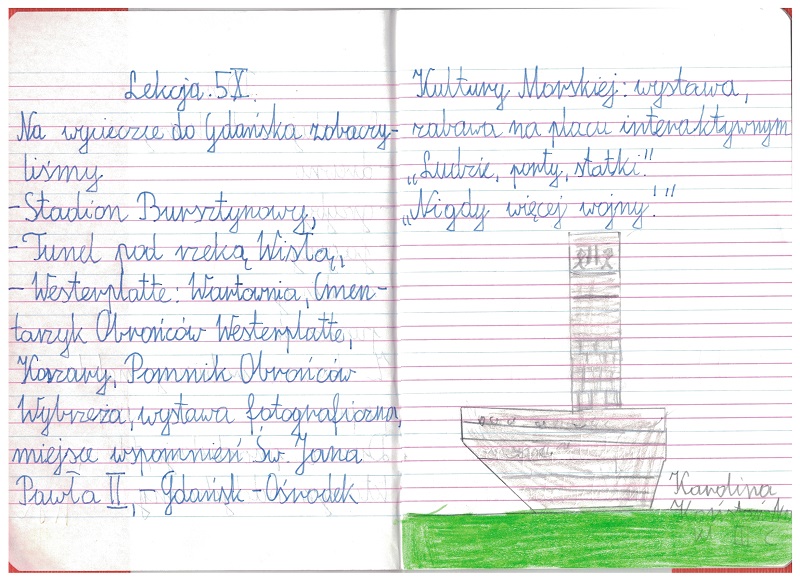 Lekcja. 5X.
Na wycieczce do Gdańska zobaczy-
liśmy
- Stadion Bursztynowy,
- Tunel pod rzeką Wisłą,
- Westerplatte: Wartownia, Cmen-
tarzyk Obrońców Westerplatte,
Koszary, Pomnik Obrońców
Wybrzeża, wystawa fotograficzna,
miejsce wspomnień Św. Jana
Pawła II, - Gdańsk - Ośrodek
Kultury Morskiej: wystawa,
zabawa na placu interaktywnym
„Ludzie, porty, statki."
„Nigdy więcej wojny!"
Karolina